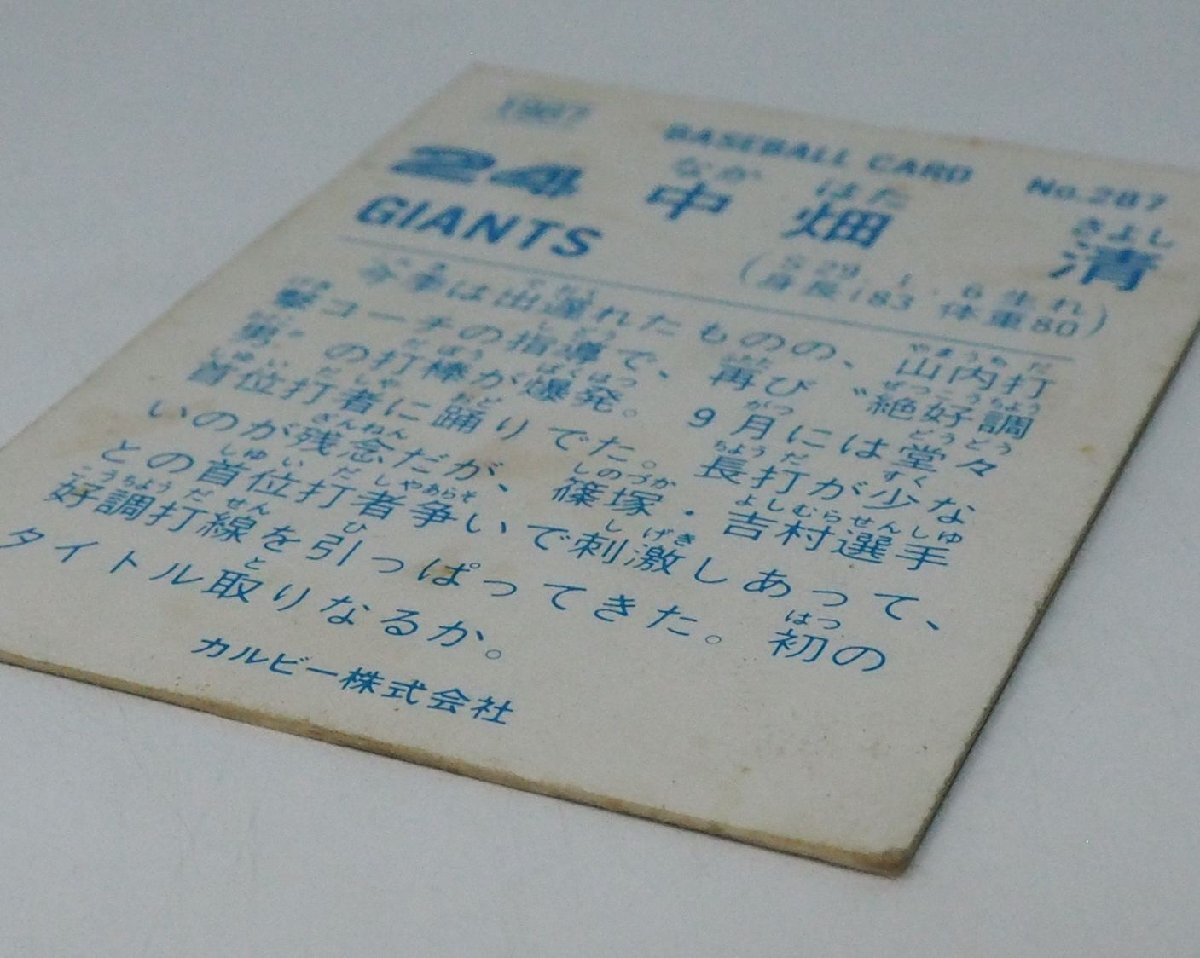 1987 BASEBALL CARD No.287
なか はた きよし
24 中畑 清
GIANTS (S29.1.6生れ
身長183 体重80)
今季は出遅れたものの、山内打
撃コーチの指導で、再び“絶好調
男”の打棒が爆発。9月には堂々
首位打者に踊りでた。長打が少な
いのが残念だが、篠塚・吉村選手
との首位打者争いで刺激しあって、
好調打線を引っぱってきた。初の
タイトル取りなるか。
カルビー株式会社